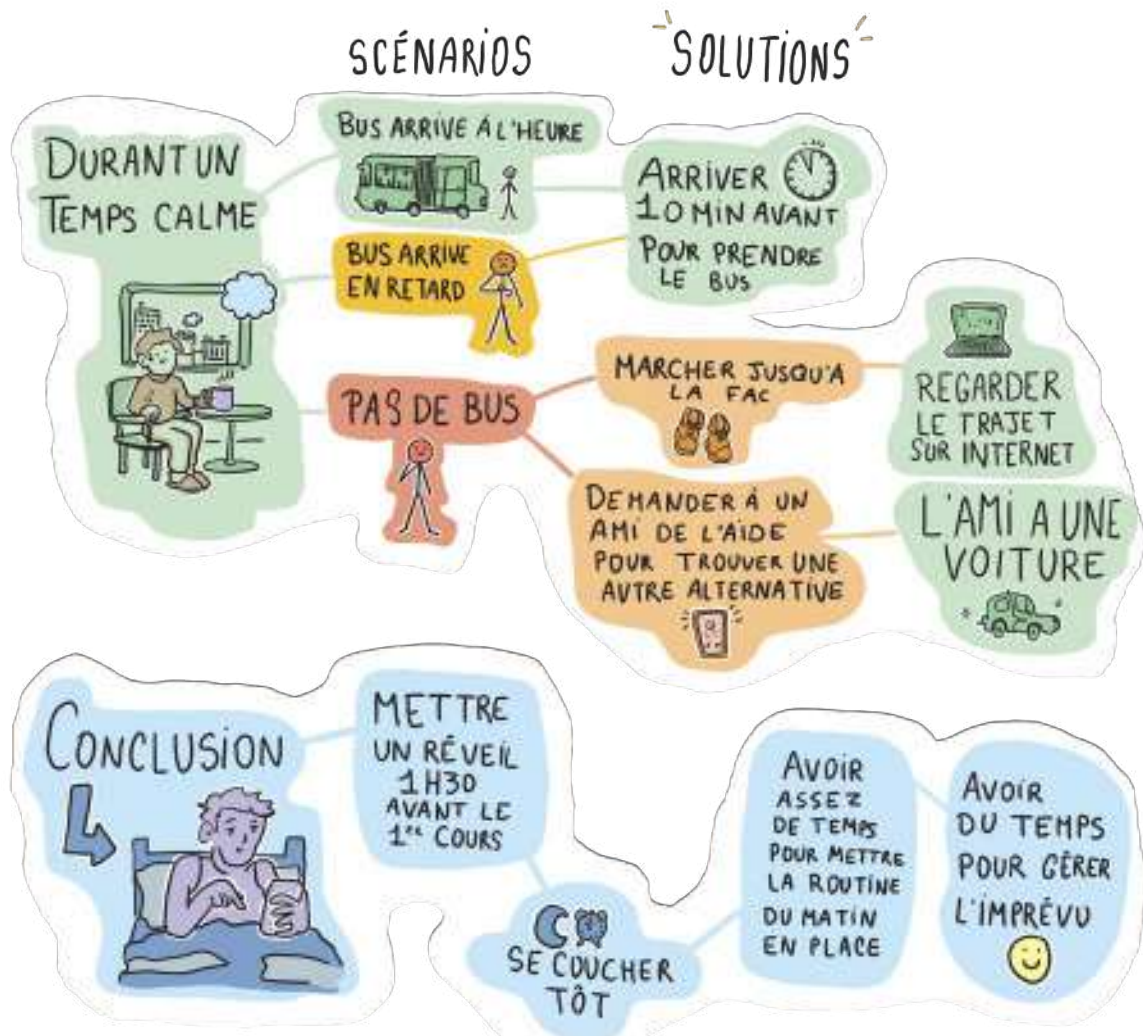 SCÉNARIOS
"SOLUTIONS"
DURANT UN
TEMPS CALME
BUS ARRIVE À L'HEURE
BUS ARRIVE
EN RETARD
ARRIVER
10 MIN AVANT
POUR PRENDRE
LE BUS
PAS DE BUS
MARCHER JUSQU'A
LA FAC
REGARDER
LE TRAJET
SUR INTERNET
DEMANDER À UN
AMI DE L'AIDE
POUR TROUVER UNE
AUTRE ALTERNATIVE
L'AMI A UNE
VOITURE
CONCLUSION
METTRE
UN RÉVEIL
1H30
AVANT LE
1er COURS
SE COUCHER
TÔT
AVOIR
ASSEZ
DE TEMPS
POUR METTRE
LA ROUTINE
DU MATIN
EN PLACE
AVOIR
DU TEMPS
POUR GÉRER
L'IMPRÉVU